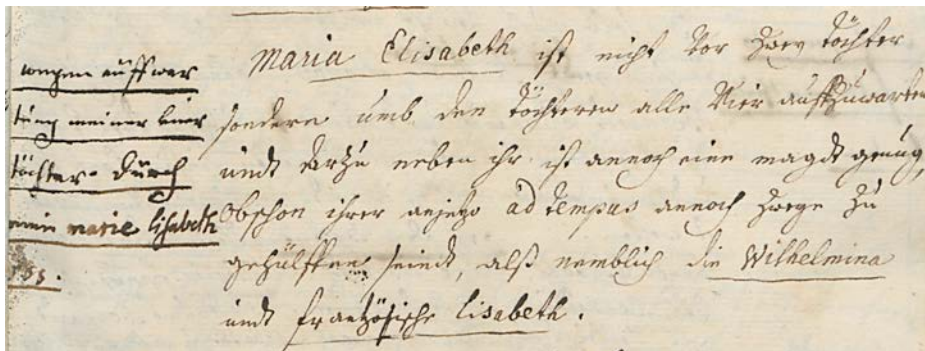 wegen auffwar
tung meiner vier
töchter durch
marie lisabeth
Maria Elisabeth ist nicht vor zwey töchter
sondern umb den töchteren alle vier auffzuwarten
undt darzu neben ihr ist annoch eine magdt genug,
Obschon ihrer anjetzo ad tempus annoch zwege zu
gehülffen seindt, alß nemblich die Wilhelmina
undt frantzösische Lisabeth.